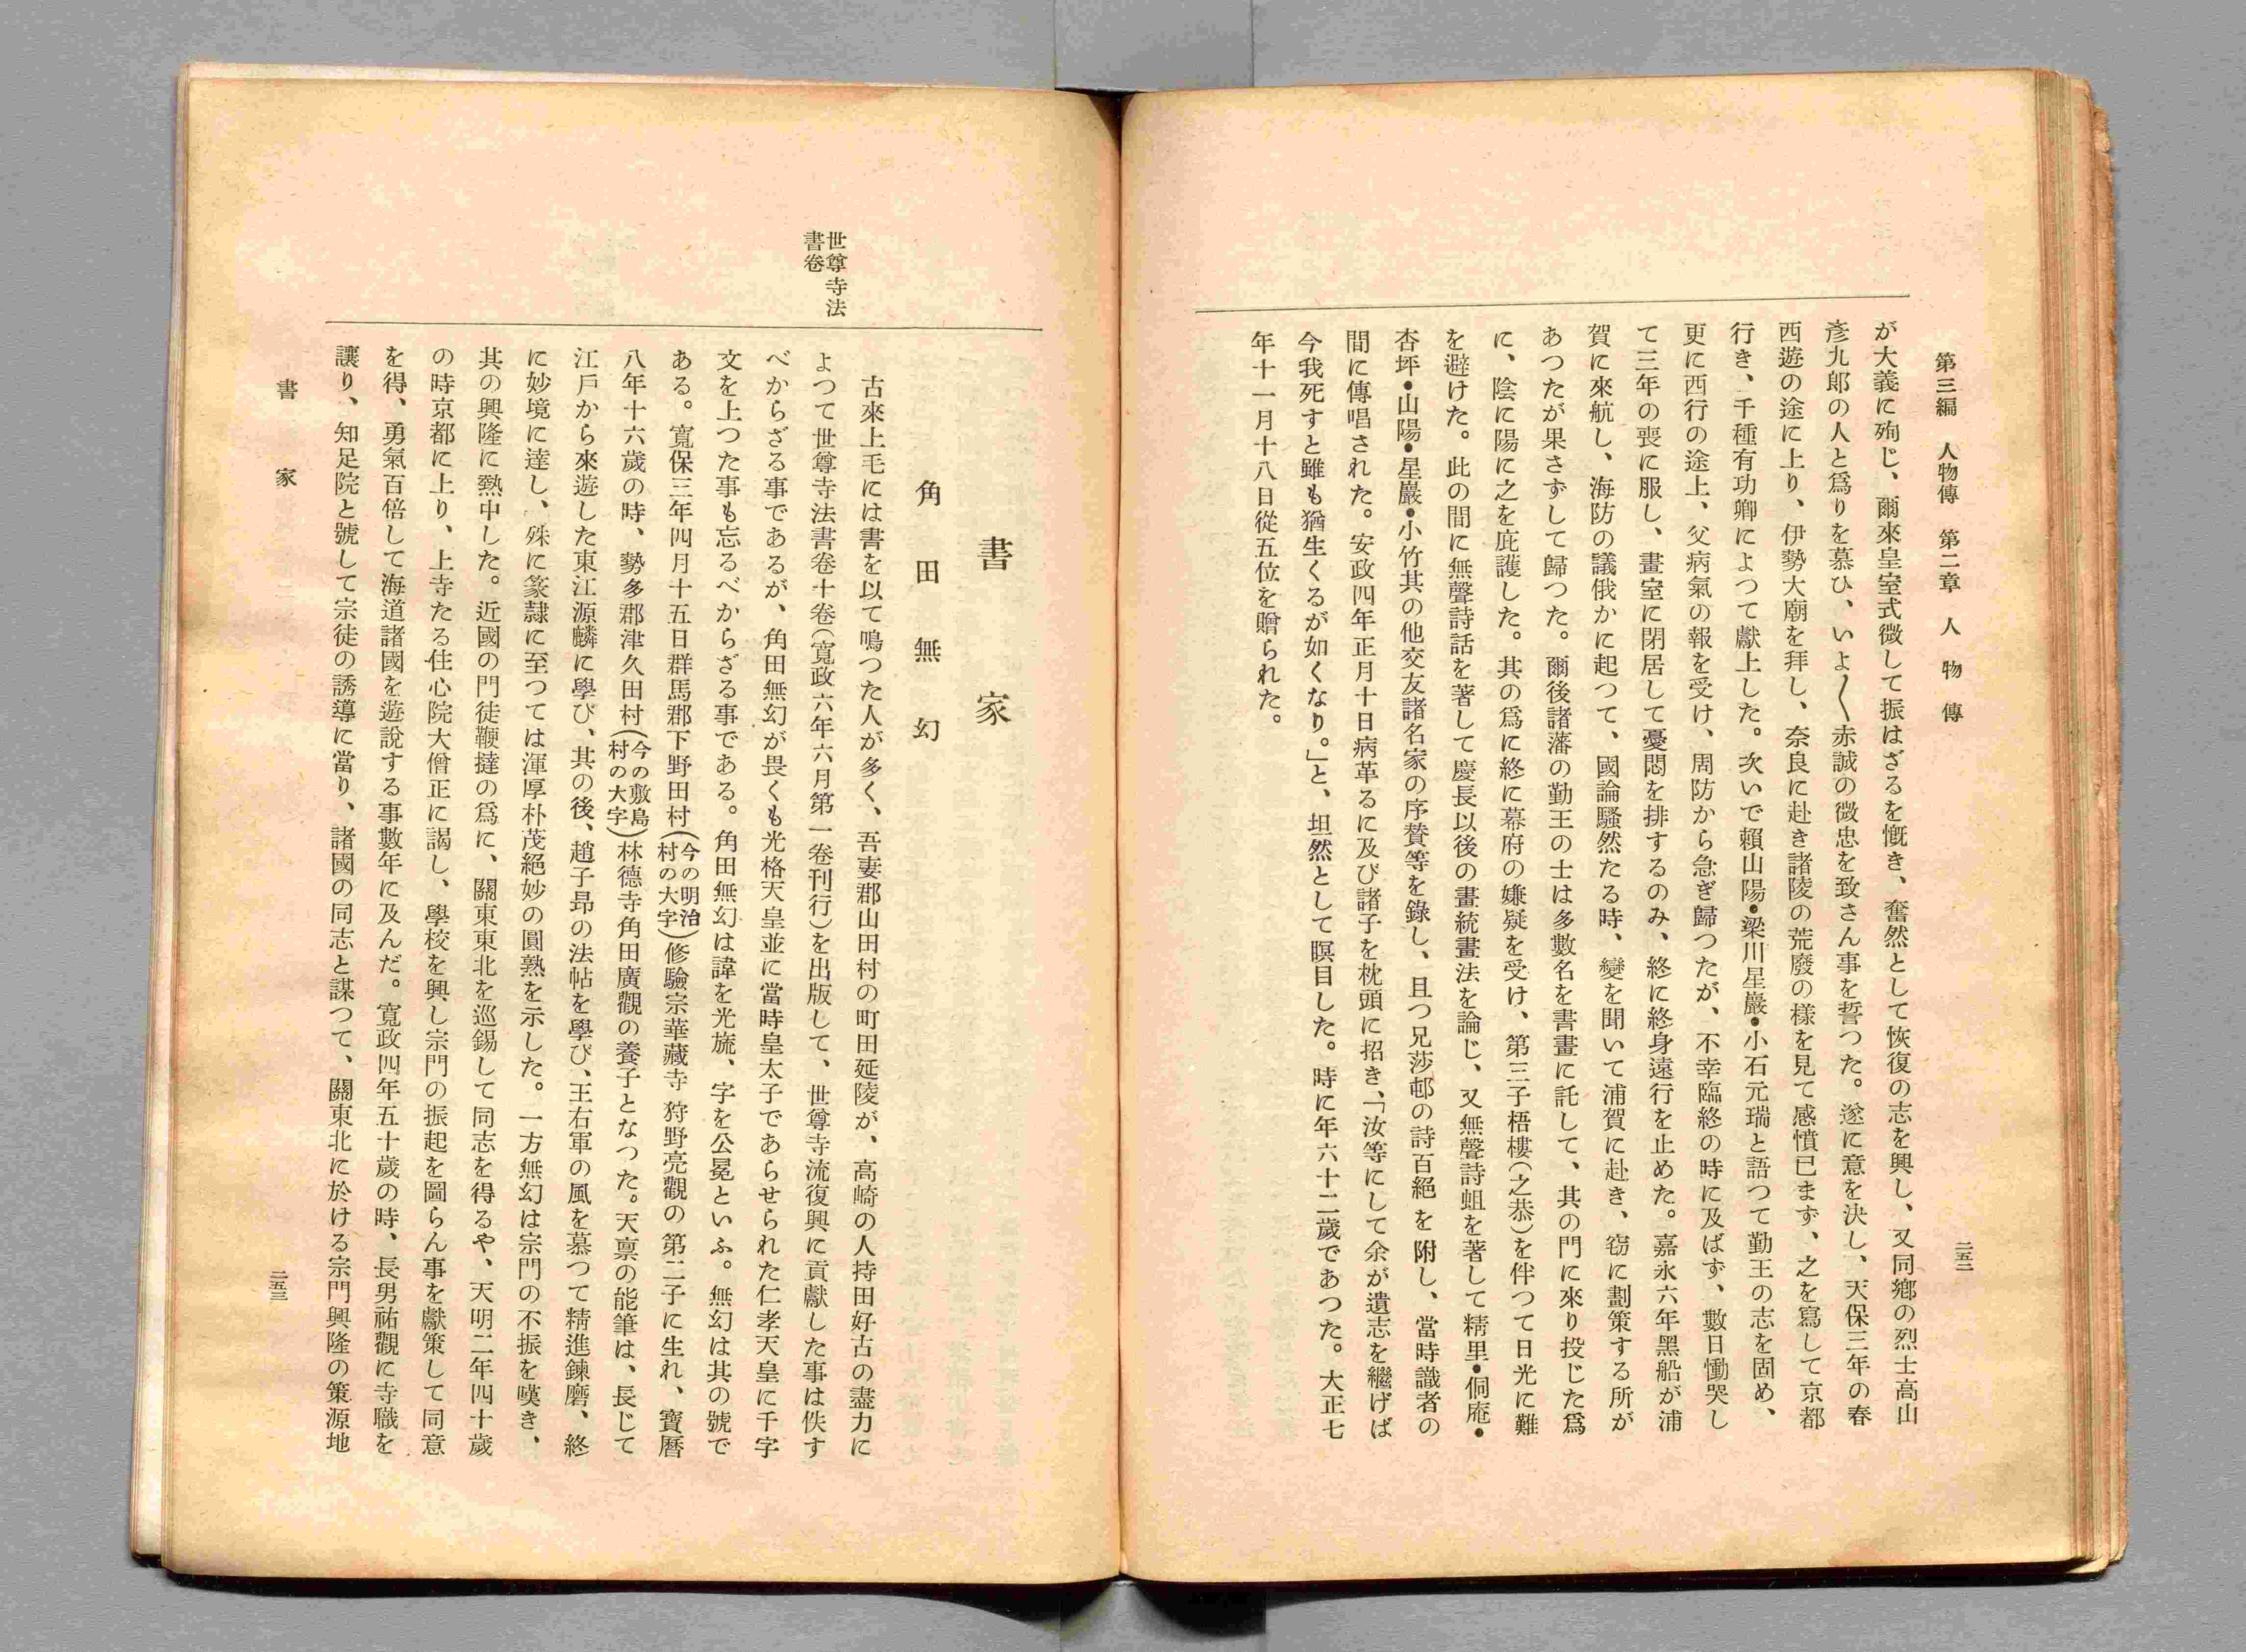 第三編　人物傳　第二章　人物傳
二五二
が大義に殉じ、爾來皇室式微して振はざるを慨き、奮然として恢復の志を興し、又同鄕の烈士高山
彥九郎の人と爲りを慕ひ、いよ〱赤誠の微忠を致さん事を誓つた。遂に意を決し、天保三年の春
西遊の途に上り、伊勢大廟を拜し、奈良に赴き諸陵の荒廢の樣を見て感憤已まず、之を寫して京都
行き、千種有功卿によつて獻上した。次いで賴山陽•梁川星巖•小石元瑞と語つて勤王の志を固め、
更に西行の途上、父病氣の報を受け、周防から急ぎ歸つたが、不幸臨終の時に及ばず、數日慟哭し
て三年の喪に服し、畫室に閉居して憂悶を排するのみ、終に終身遠行を止めた。嘉永六年黑船が浦
賀に來航し、海防の議俄かに起つて、國論騷然たる時、變を聞いて浦賀に赴き、窃に劃策する所が
あつたが果さずして歸つた。爾後諸藩の勤王の士は多數名を書畫に託して、其の門に來り投じた爲
に、陰に陽に之を庇護した。其の爲に終に幕府の嫌疑を受け、第三子梧樓(之恭)を伴つて日光に難
を避けた。此の間に無聲詩話を著して慶長以後の畫統畫法を論じ、又無聲詩蛆を著して精里•侗庵•
杏坪•山陽•星巖•小竹其の他交友諸名家の序賛等を錄し、且つ兄莎邨の詩百絕を附し、當時識者の
間に傳唱された。安政四年正月十日病革るに及び諸子を枕頭に招き、「汝等にして余が遺志を繼げば
今我死すと雖も猶生くるが如くなり。」と、坦然として瞑目した。時に年六十二歲であつた。大正七
年十一月十八日從五位を贈られた。
書家
角田無幻
世尊寺法
書卷
古來上毛には書を以て鳴つた人が多く、吾妻郡山田村の町田延陵が、高崎の人持田好古の盡力に
よつて世尊寺法書卷十卷(寬政六年六月第一卷刊行)を出版して、世尊寺流復興に貢獻した事は佚す
べからざる事であるが、角田無幻が畏くも光格天皇並に當時皇太子であらせられた仁孝天皇に千字
文を上つた事も忘るべからざる事である。角田無幻は諱を光旒、字を公冕といふ。無幻は其の號で
ある。寬保三年四月十五日群馬郡下野田村(今の明治村の大字)修驗宗華藏寺狩野亮觀の第二子に生れ、寶曆
八年十六歲の時、勢多郡津久田村(今の敷島村の大字)林德寺角田廣觀の養子となつた。天稟の能筆は、長じて
江戶から來遊した東江源麟に學び、其の後、趙子昻の法帖を學び、王右軍の風を慕つて精進鍊磨、終
に妙境に達し、殊に篆隷に至つては渾厚朴茂絕妙の圓熟を示した。一方無幻は宗門の不振を嘆き、
其の興隆に熱中した。近國の門徒鞭撻の爲に、關東東北を巡錫して同志を得るや、天明二年四十歲
の時京都に上り、上寺たる住心院大僧正に謁し、學校を興し宗門の振起を圖らん事を獻策して同意
を得、勇氣百倍して海道諸國を遊說する事數年に及んだ。寬政四年五十歲の時、長男祐觀に寺職を
讓り、知足院と號して宗徒の誘導に當り、諸國の同志と謀つて、關東北に於ける宗門興隆の策源地
書家
二五三